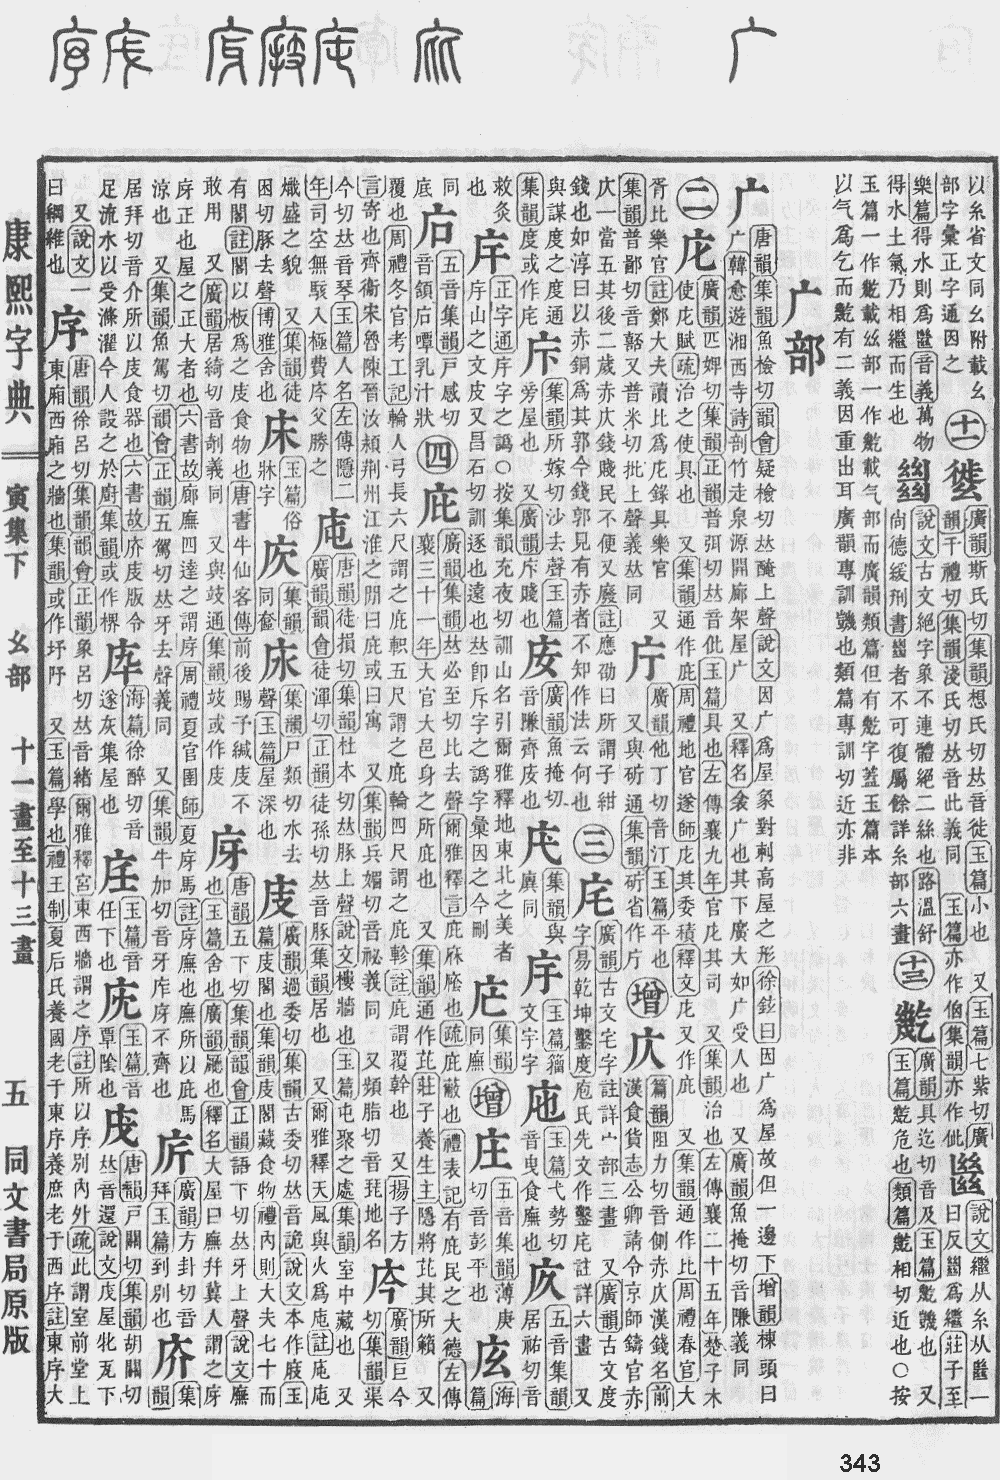 以糸省文同幺附載幺
部字彙正字通因之
十一
廣韻斯氏切集韻想氏切𠀤音徙玉篇小也 又玉篇七紫切廣
韻千禮切集韻淺氏切𠀤音此義同 玉篇亦作㑐集韻亦作佌
說文繼或从糸一
曰反㡭爲繼莊子至
樂篇得水則爲㡭音義萬物
得水土氣乃相繼而生也
說文古文絕字象不連體絕二絲也路溫舒
尚德緩刑書㡭者不可復屬餘詳糸部六畫
十三
廣韻具迄切音及玉篇譏也 又
玉篇危也類篇相切近也○按
玉篇一作載幺部一作載气部而廣韻類篇但有字蓋玉篇本
以气爲乞而有二義因重出耳廣韻專訓譏也類篇專訓切近亦非
广部
广
唐韻集韻魚檢切韻會疑檢切𠀤醃上聲說文因广爲屋象對刺高屋之形徐鉉曰因广爲屋故但一邊下增韻棟頭曰
广韓愈遊湘西寺詩剖竹走泉源開廊架屋广 又釋名其下廣大如广受人也 又廣韻魚掩切音隒義同
二
庀
廣韻匹婢切集韻正韻普弭切𠀤音仳玉篇具也左傳襄九年官庀其司 又集韻治也左傳襄二十五年楚子木
使庀賦疏治之使具也 又集韻通作庇周禮地官遂師庀其委積釋文庀又作庇 又集韻通作比周禮春官大
胥比樂官註鄭大夫讀比爲庀錄具樂官 又
集韻普鄙切音嚭又普米切批上聲義𠀤同
庁
廣韻他丁切音汀玉篇平也
又與㡳通集韻㡳省作庁
增
庂
篇韻阻力切音側赤庂漢錢名前
漢食貨志公卿請令京師鑄官赤
庂一當五其後二歲赤庂錢賤民不便又廢註應劭曰所謂子紺
錢也如淳曰以赤銅爲其郭今錢郭見有赤者不知作法云何也
三
㡯
廣韻古文宅字註詳宀部三畫 又廣韻古文度
字易乾坤鑿度庖氏先文作鑿㡯註詳六畫 又
集韻度或作
與謀度之度通
㡿
集韻所嫁切沙去聲玉篇
旁屋也 又集韻㡿賤也
集韻與
廎同
玉篇籀
文宇字
玉篇弋勢切
音曳食廡也
五音集韻
居祐切音
救灸
也
庠
正字通庠字之譌○按集韻充夜切訓山名引爾雅釋地東北之美者
庠山之文皮又昌石切訓逐也遠也𠀤卽斥字之譌字彙因之今刪
集韻
同廡
增
庄
五音集韻薄庚
切音彭平也
庅
海
篇
同
底
五音集韻戶感切
音頜㡴嘾乳汁狀
四
庇
廣韻集韻𠀤必至切比去聲爾雅釋言庇庥廕也疏庇蔽也禮表記有庇民之大德左傳
襄三十一年大官大邑身之所庇也 又集韻通作芘莊子養生主隱將芘其所藾 又
覆也周禮冬官考工記輪人弓長六尺謂之庇軹五尺謂之庇輪四尺謂之庇軫註庇謂覆幹也 又揚子方
言寄也齊衞宋魯陳晉汝潁荆州江淮之閒曰庇或曰寓 又集韻兵媚切音祕義同 又頻脂切音琵地名
㡱
廣韻巨今
切集韻渠
今切𠀤音琴玉篇人名左傳隱二
年司空無駭入極費庈父勝之
庉
唐韻徒損切集韻杜本切𠀤豚上聲說文樓牆也玉篇屯聚之處集韻室中藏也 又
廣韻韻會徒渾切正韻徒孫切𠀤音豚集韻居也 又爾雅釋天風與火爲庉註庉庉
熾盛之貌 又集韻徒
困切豚去聲博雅舍也
床
玉篇俗
牀字
庆
集韻
同奆
集韻尸類切水去
聲玉篇屋深也
庋
廣韻過委切集韻古委切𠀤音詭說文本作庪玉
篇庋閣也集韻庋閣藏食物禮內則大夫七十而
有閣註閣以板爲之庋食物也唐書牛仙客傳前後賜予緘庋不
敢用 又廣韻居綺切音剞義同 又與攱通集韻攱或作庋
庌
唐韻五下切集韻韻會正韻語下切𠀤牙上聲說文廡
也玉篇舍也廣韻廳也釋名大屋曰廡幷冀人謂之庌
庌正也屋之正大者也六書故廊廡四達之謂庌周禮夏官圉師夏庌馬註庌廡也廡所以庇馬
涼也 又集韻魚駕切韻會正韻五駕切𠀤牙去聲義同 又集韻牛加切音牙庌庌不齊也
廣韻方卦切音
拜玉篇到別也
庎
集
韻
居拜切音介所以庋食器也六書故庎庋版令
足流水以受滌濯今人設之於廚集韻或作㭏
海篇徐醉切音
遂灰集屋也
玉篇音
任下也
庣
玉篇音
覃陰也
唐韻戶關切集韻胡關切
𠀤音還說文庋屋牝瓦下
又說文一
曰綱維也
序
唐韻徐呂切集韻韻會正韻象呂切𠀤音緖爾雅釋宮東西牆謂之序註所以序別內外疏此謂室前堂上
東廂西廂之牆也集韻或作圩㡰 又玉篇學也禮王制夏后氏養國老于東序養庶老于西序註東序大
康熙字典 寅集下 幺部 十一畫至十三畫 五 同文書局原版
343